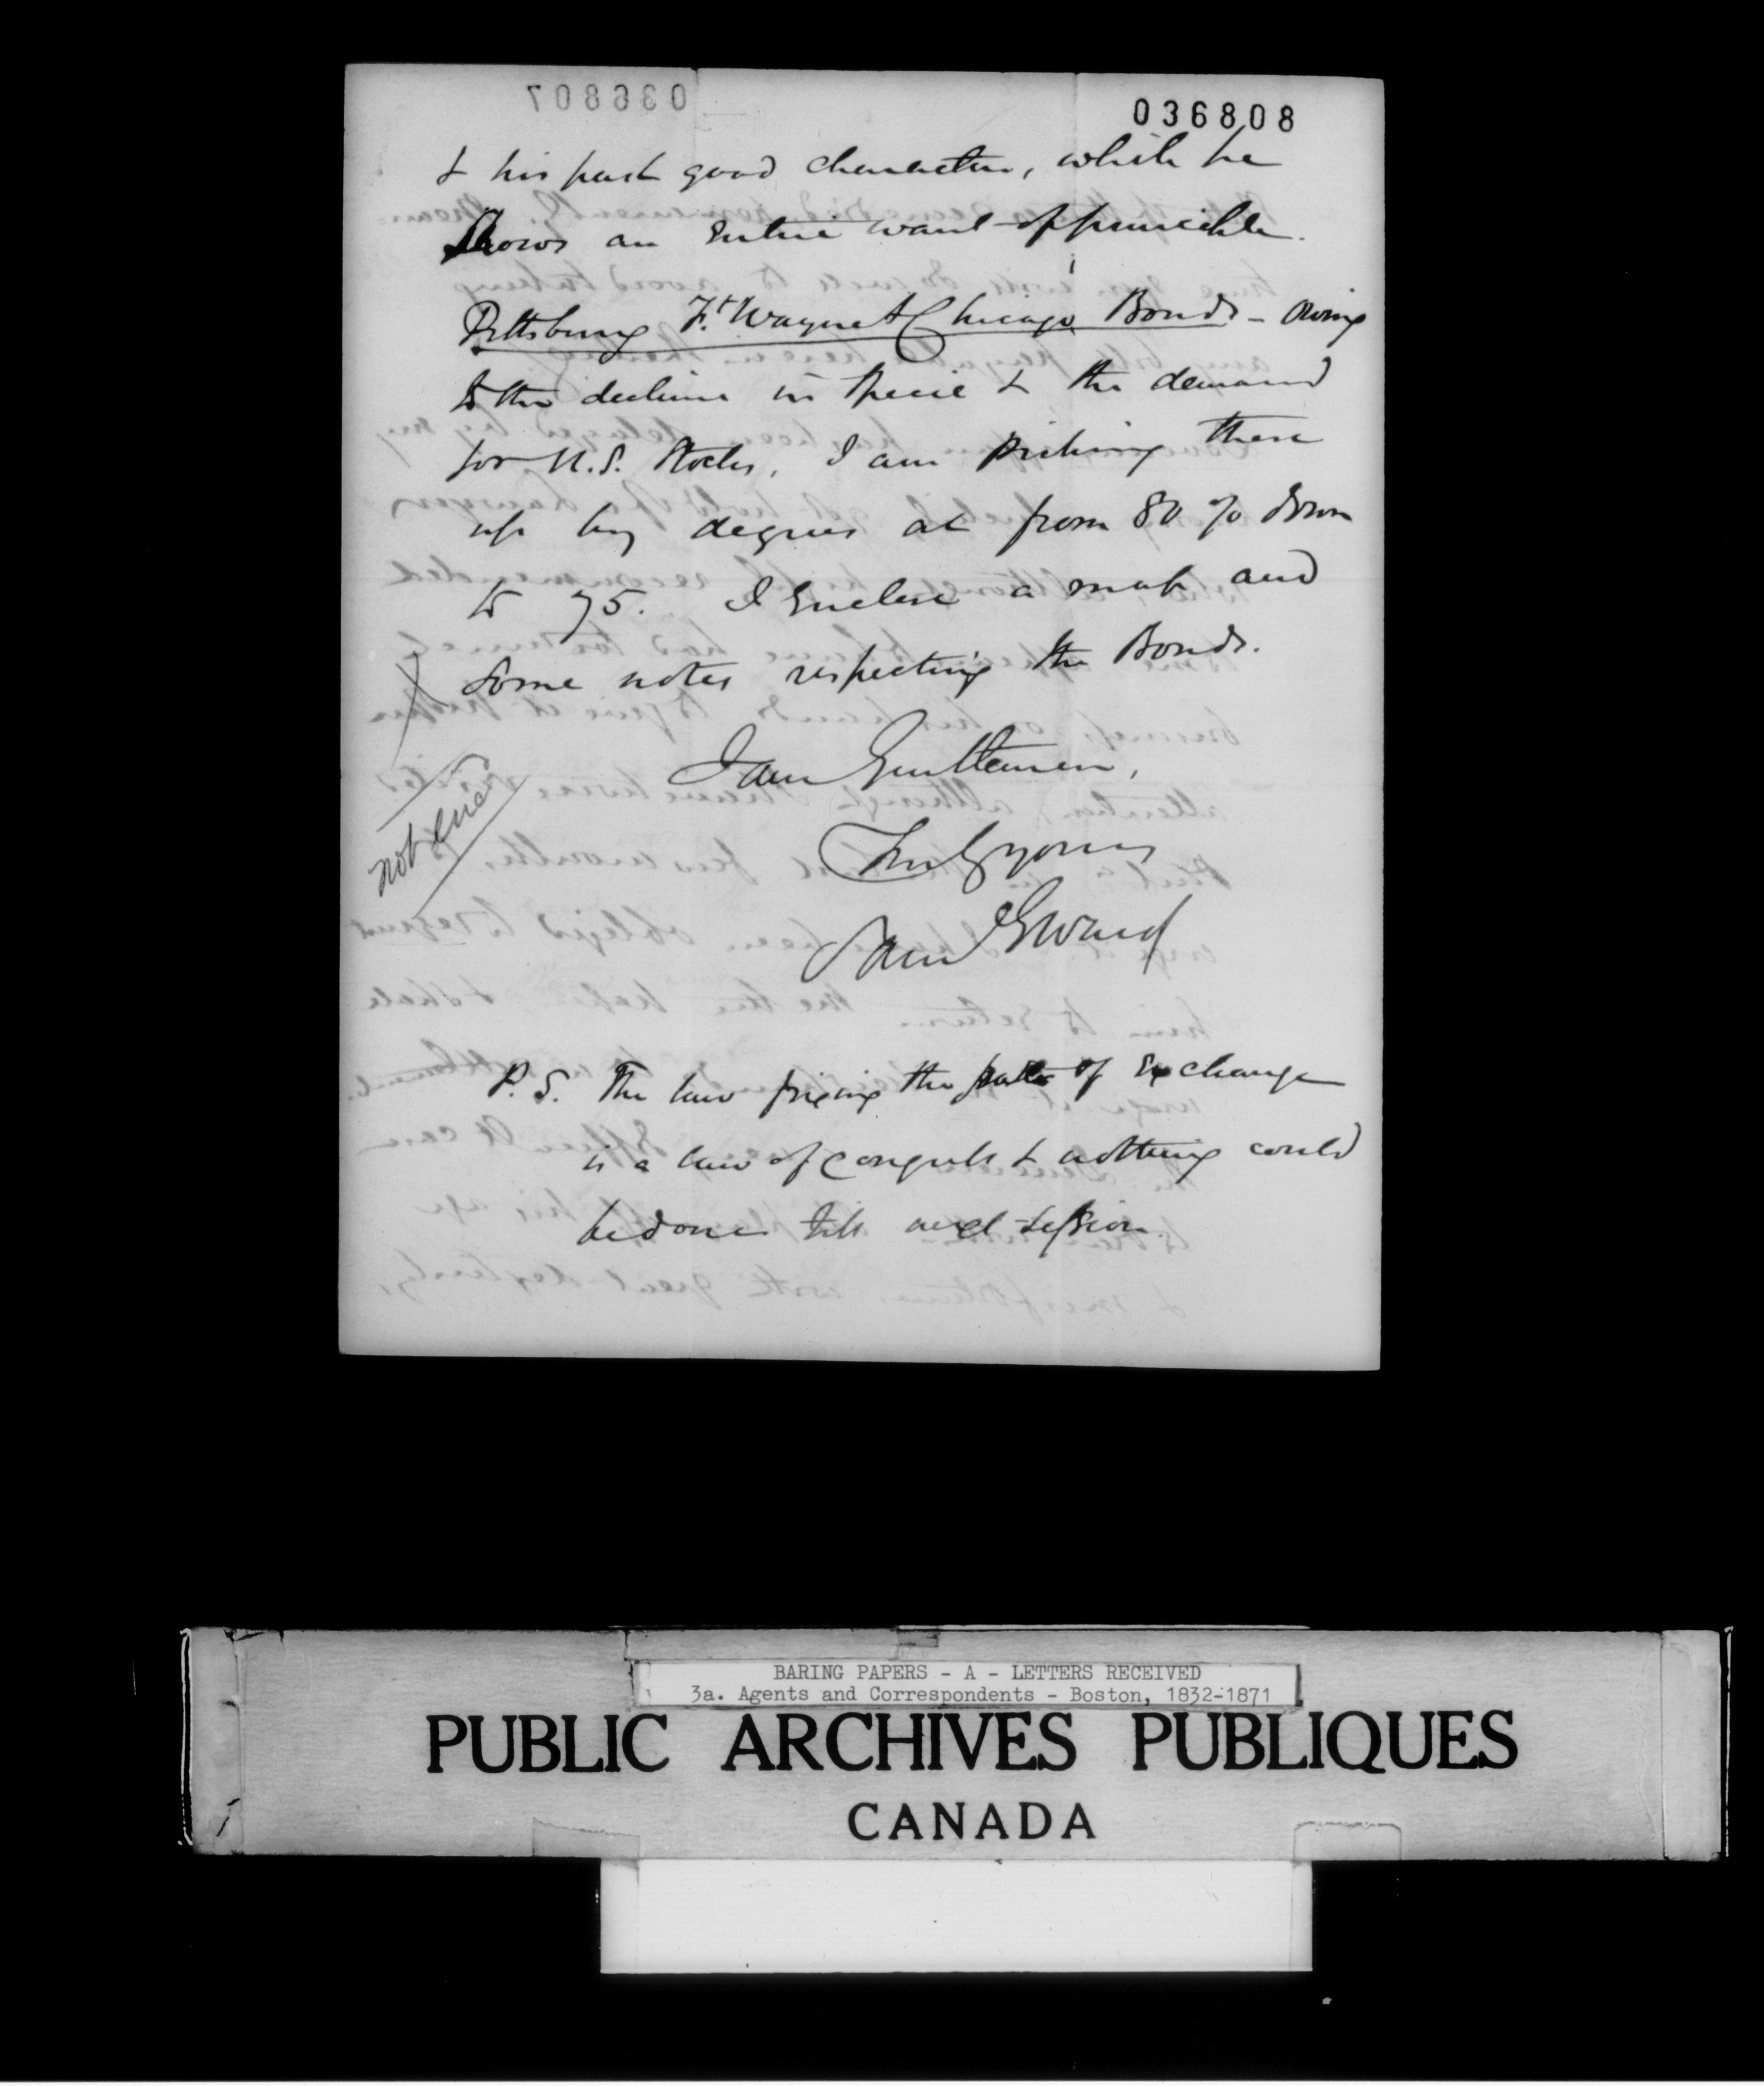 036807
036808
& his past good character, while he
Shows an entire want of principle.
Pittsburg Ft. Wayne & Chicago Bonds - Owing
to the decline in specie & the demand
for U.S. Stocks, I am picking these
up by degrees at from 80 % down
to 75. I enclose a map and
some notes respecting the Bonds.
not encd
I am Gentlemen,
Truly yours
Sam G Ward
P.S. The law fixing the rate of exchange
is a law of Congress & nothing could
be done till next session.
BARING PAPERS - A - LETTERS RECEIVED
3a. Agents and Correspondents - Boston, 1832-1871
PUBLIC ARCHIVES PUBLIQUES
CANADA